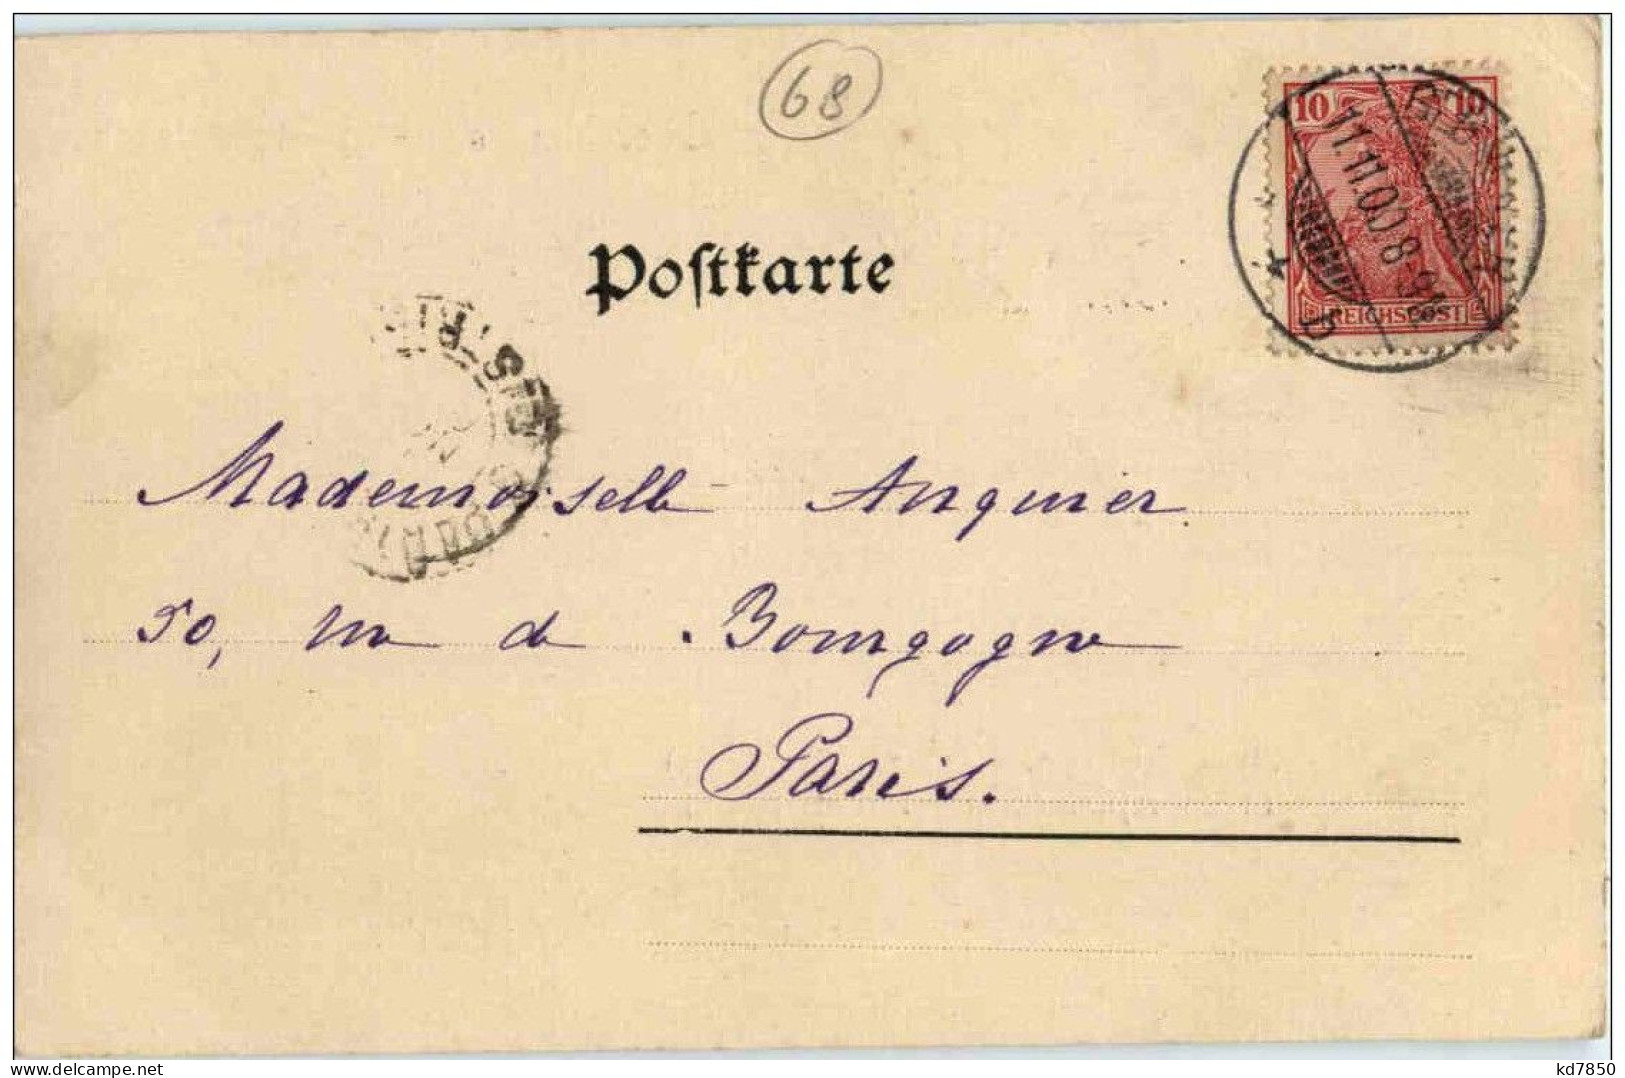 68
10 10
11.11.00 8-9
REICHSPOST
Postkarte
PARIS
Mademoiselle Anquier
50, rue de Bourgogne
Paris.
kd7850